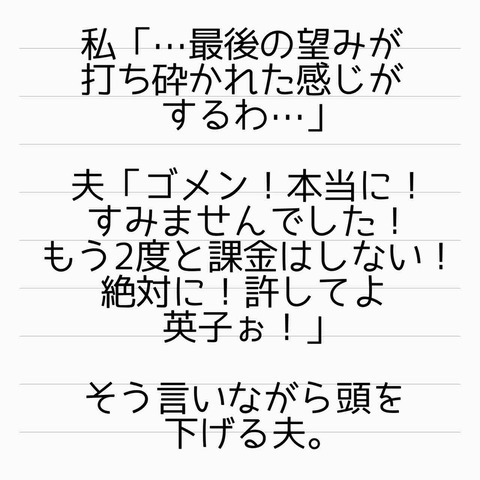 私「…最後の望みが
打ち砕かれた感じが
するわ…」
夫「ゴメン！本当に！
すみませんでした！
もう2度と課金はしない！
絶対に！許してよ
英子ぉ！」
そう言いながら頭を
下げる夫。